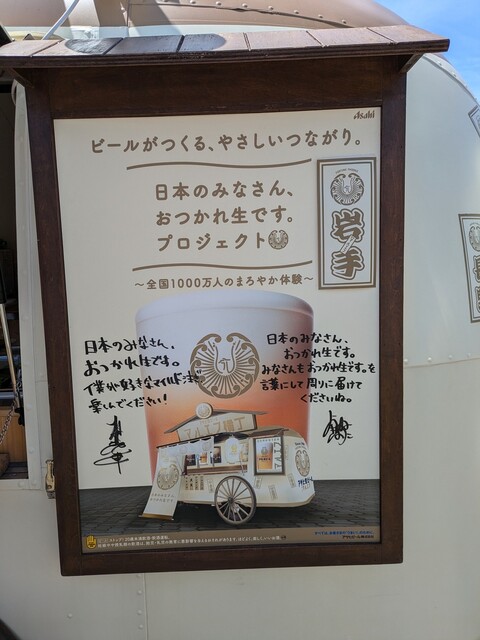 Asahi
ビールがつくる、やさしいつながり。
日本のみなさん、
おつかれ生です。
プロジェクト
岩手
〜全国1000万人のまろやか体験〜
日本のみなさん、
おつかれ生です。
僕が好きなマイルド注ぎ
楽しんでください!
日本のみなさん、
おつかれ生です。
みなさんもおつかれ生です。を
言葉にして周りに届けて
くださいね。
マルエフ横丁